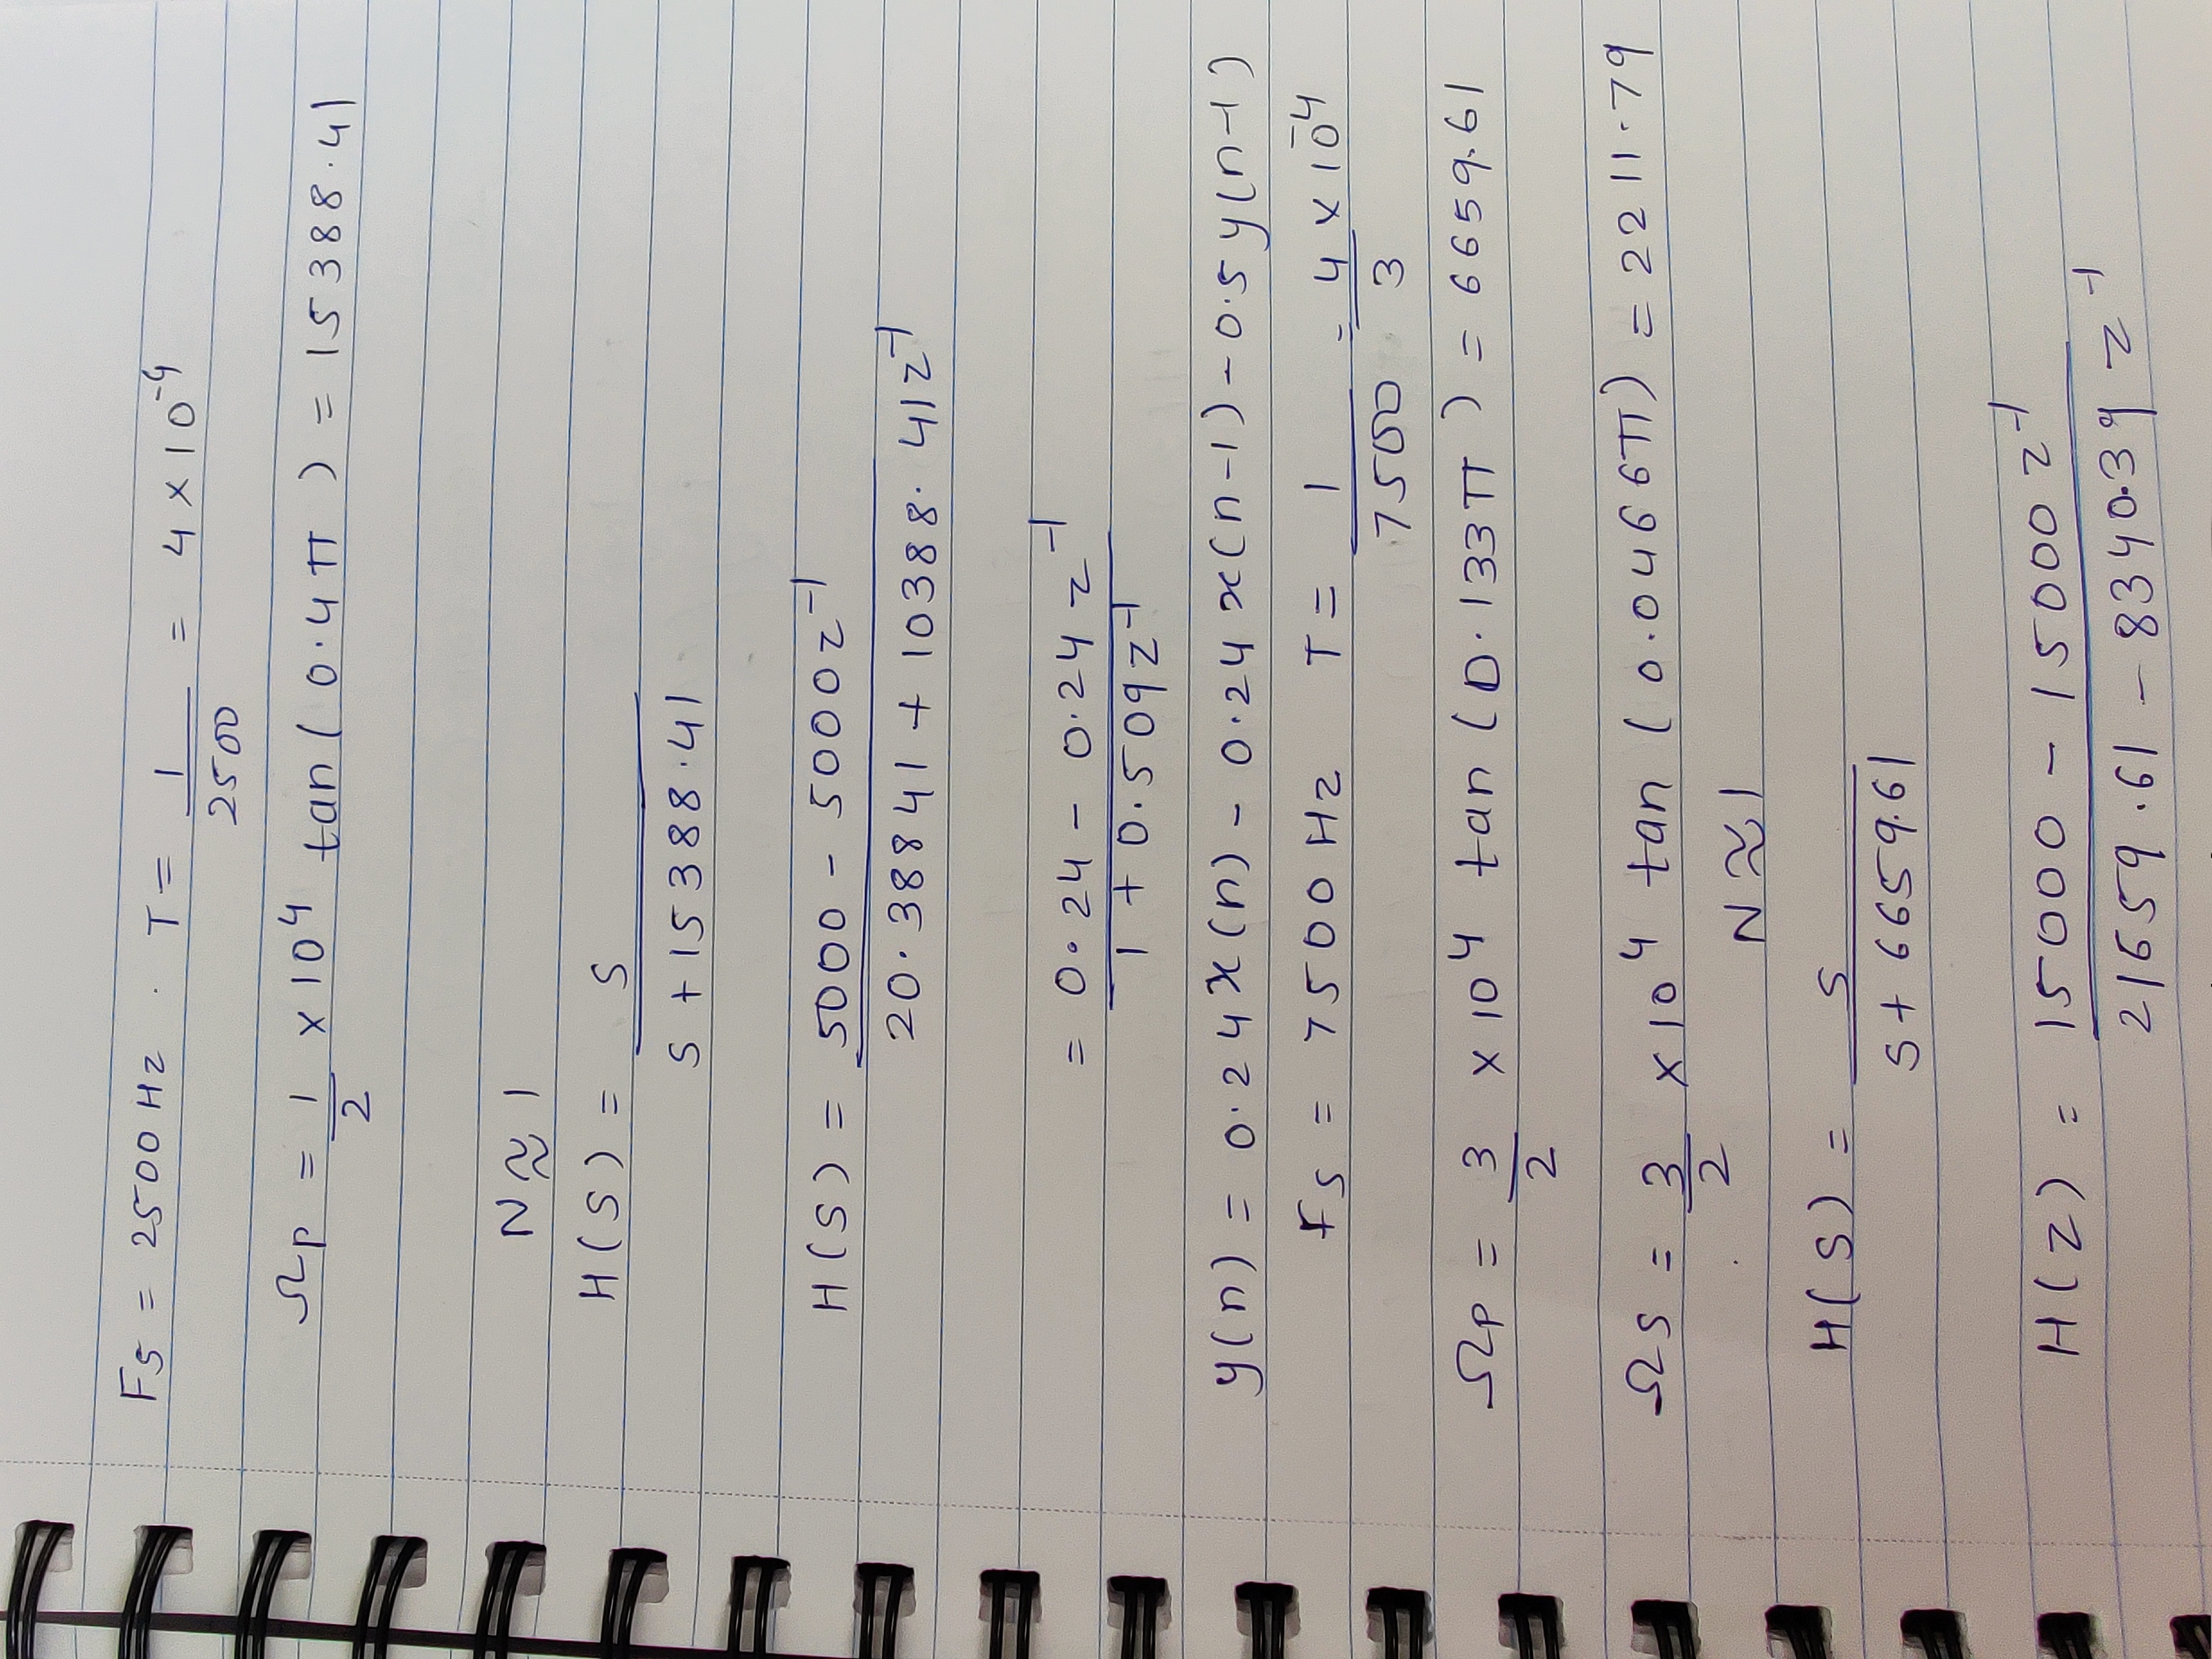 Fs = 2500 Hz . T = 1/2500 = 4 × 10⁻⁴
Ωp = 1/2 × 10⁴ tan ( 0.4π ) = 15388.41
N ≈ 1
H(s) = s/(s + 15388.41)
H(s) = (5000 - 5000z⁻¹)/(20.38841 + 10388.41z⁻¹)
= (0.24 - 0.24z⁻¹)/(1 + 0.509z⁻¹)
y(n) = 0.24x(n) - 0.24x(n-1) - 0.5y(n-1)
Fs = 7500 Hz T = 1/7500 = 4/3 × 10⁻⁴
Ωp = 3/2 × 10⁴ tan (0.133π) = 6659.61
Ωs = 3/2 × 10⁴ tan (0.0466π) = 2211.79
N ≈ 1
H(s) = s/(s + 6659.61)
H(z) = (15000 - 15000z⁻¹)/(21659.61 - 8340.39z⁻¹)